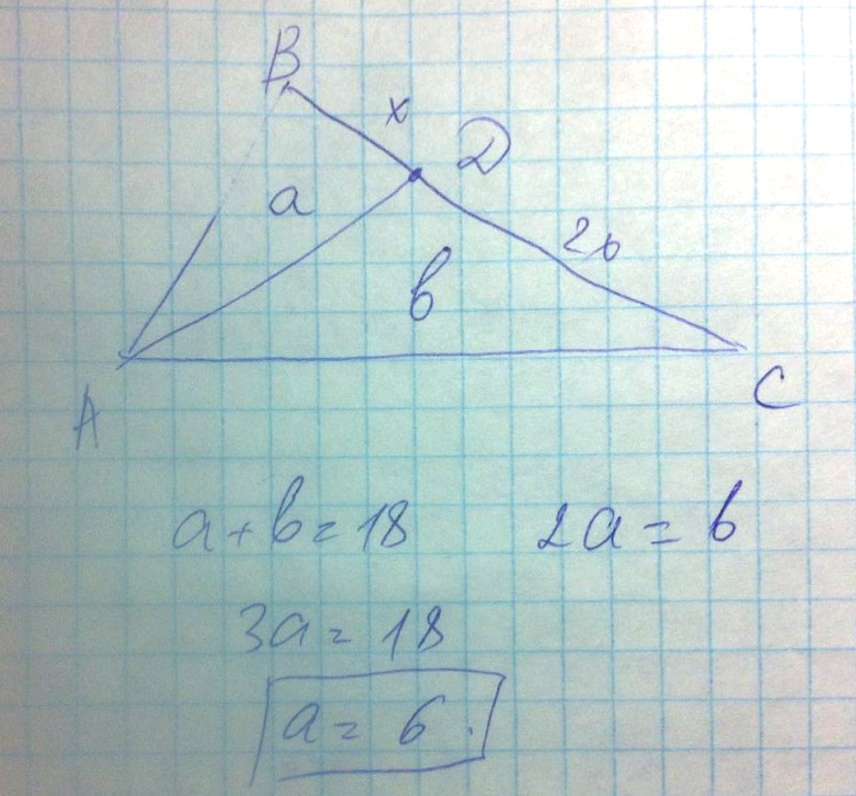 B
x
D
a
2x
b
A
C
a+b=18 2a=b
3a=18
a=6.